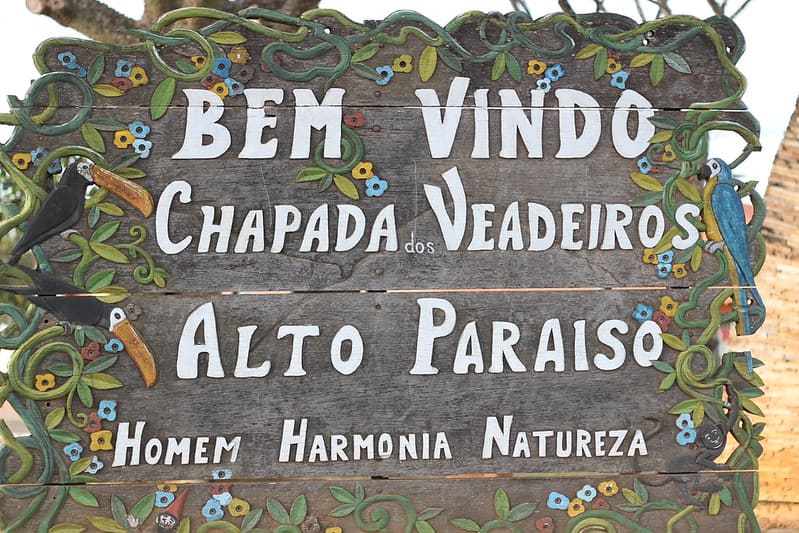 BEM VINDO
CHAPADA dos VEADEIROS
ALTO PARAISO
HOMEM HARMONIA NATUREZA